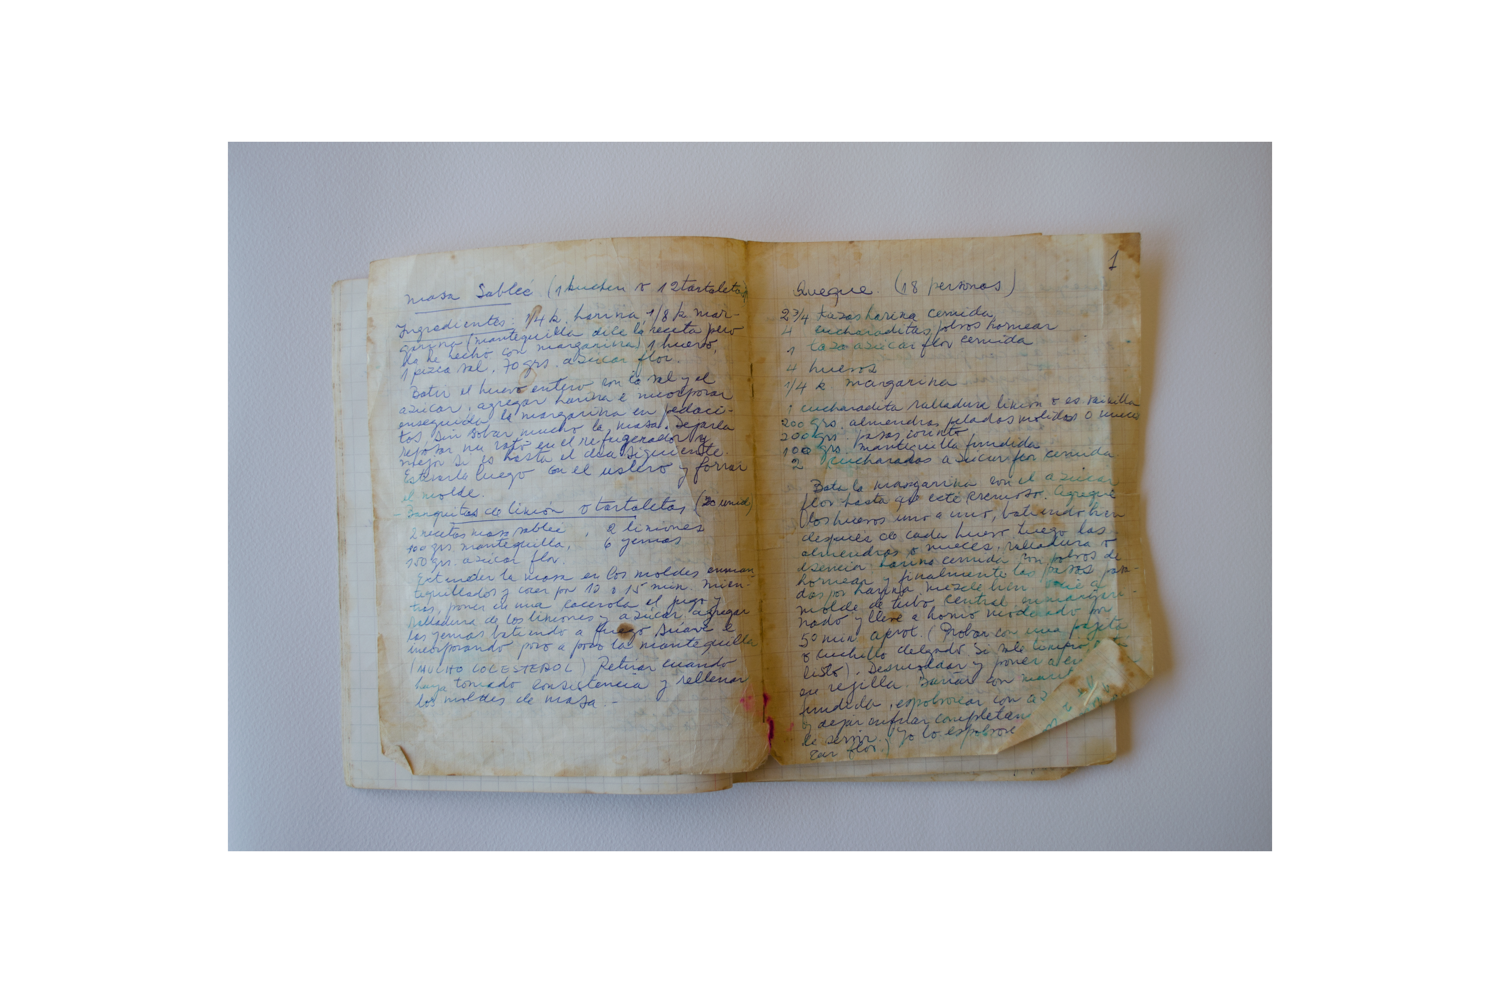 Masa Sableé (1 kuchen o 12 tartaletas)
Ingredientes: 1/4 k. harina 1/8 k mar-
garina (mantequilla dice la receta pero
la he hecho con margarina) 1 huevo,
1 pizca sal, 70 grs. azúcar flor.
Batir el huevo entero con la sal y el
azúcar, agregar harina e incorporar
enseguida la margarina en pedaci-
tos sin sobar mucho la masa. Dejarla
reposar un rato en el refrigerador y
mejor si es hasta el día siguiente.
Estirarla luego con el uslero y forrar
el molde.
- Barquitos de limón o tartaletas (20 unid)
2 recetas masa sableé, 2 limones
100 grs. mantequilla, 6 yemas
150 grs. azúcar flor.
Extender la masa en los moldes enman
tequillados y cocer por 12 a 15 min. Mien-
tras, poner en una cacerola el jugo y
ralladura de los limones y azúcar, agregar
las yemas batiendo a fuego suave e
incorporando poco a poco la mantequilla
(MUCHO COLESTEROL) Retirar cuando
haya tomado consistencia y rellenar
los moldes de masa -
1
Queque (18 personas)
2 3/4 tazas harina cernida
4 cucharaditas polvos hornear
1 taza azúcar flor cernida
4 huevos
1/4 k margarina
1 cucharadita ralladura limón o es vainilla
200 grs. almendras peladas molidas o nueces
200 grs pasas corinto
100 grs. mantequilla fundida
2 cucharadas azúcar flor cernida
Bata la margarina con el azúcar
flor hasta que esté cremoso. Agregue
los huevos uno a uno, batiendo bien
después de cada huevo. Luego las
almendras o nueces, ralladura o
esencia, harina cernida con polvos de
hornear y finalmente las pasas pasa-
das por harina. Mezcle bien
molde de tubo central enmargari-
nado y lleve a horno moderado por
50 min. aprox. (Probar con una pajita
o cuchillo delgado. Si sale limpio,
listo). Desmoldar y poner
en rejilla. Bañar con
fundida, espolvorear con
y dejar enfriar completam
de servir. Yo lo espolvore
car flor.)